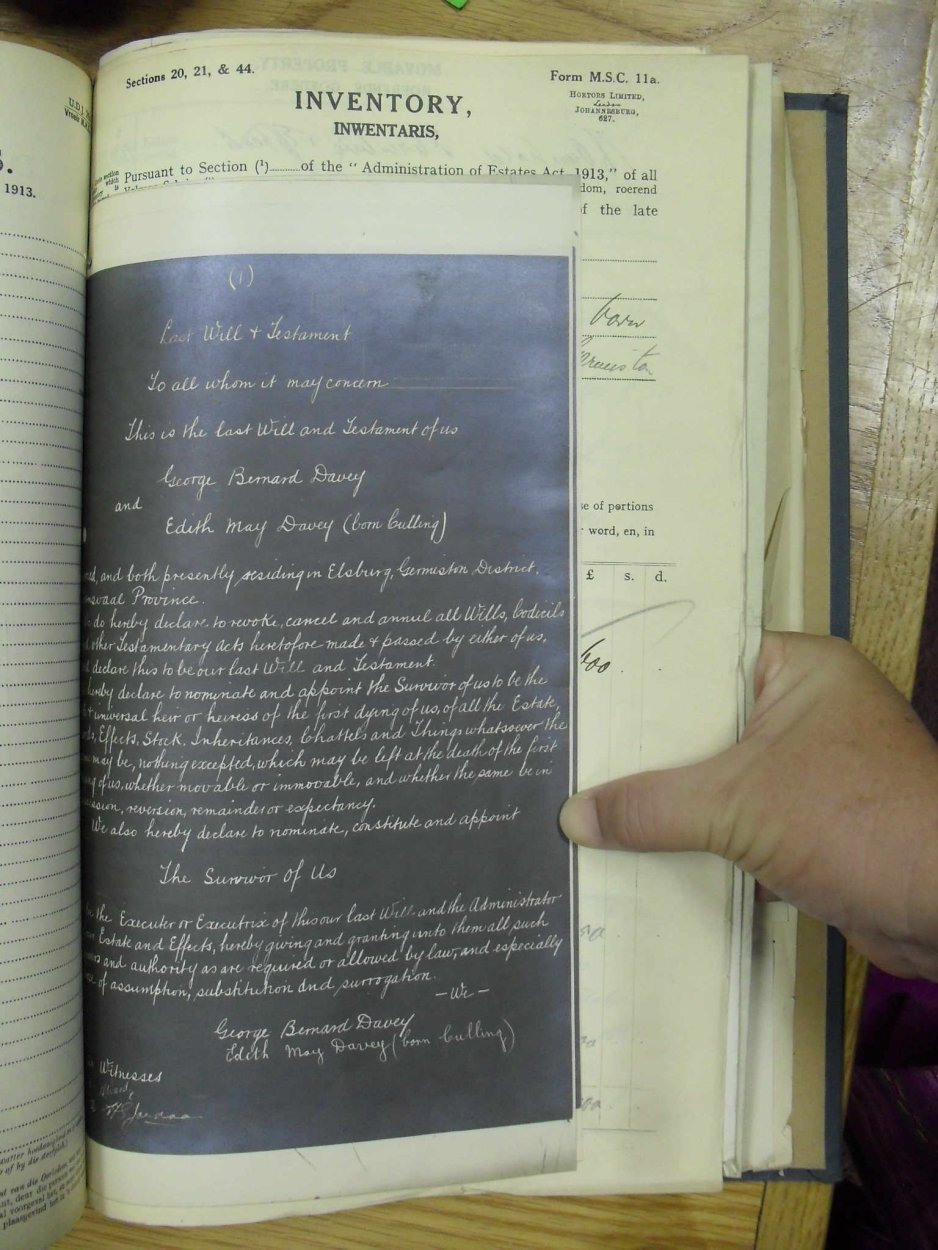 Sections 20, 21, & 44.
Form M.S.C. 11a.
HORTORS LIMITED,
JOHANNESBURG,
627.
INVENTORY,
INWENTARIS,
Pursuant to Section (¹)..........of the "Administration of Estates Act, 1913," of all
dom, roerend
of the late
1913.
born
se of portions
word, en, in
£ s. d.
(1)
Last Will & Testament
To all whom it may concern
This is the last Will and Testament of us
George Bernard Davey
and
Edith May Davey (born Culling)
and both presently residing in Elsburg, Germiston District,
Province.
do hereby declare to revoke, cancel and annul all Wills, Codecils
other Testamentary Acts heretofore made & passed by either of us,
declare this to be our last Will and Testament.
hereby declare to nominate and appoint the Survivor of us to be the
& universal heir or heiress of the first dying of us, of all the Estate,
Effects, Stock, Inheritances, Chattels and Things whatsoever the
may be, nothing excepted, which may be left at the death of the first
of us, whether movable or immovable, and whether the same be in
reversion, remainder or expectancy.
We also hereby declare to nominate, constitute and appoint
The Survivor of Us
the Executer or Executrix of this our last Will and the Administrator
Estate and Effects, hereby giving and granting unto them all such
and authority as are required or allowed by law, and especially
of assumption, substitution and surrogation.
— We —
George Bernard Davey
Edith May Davey (born Culling)
Witnesses